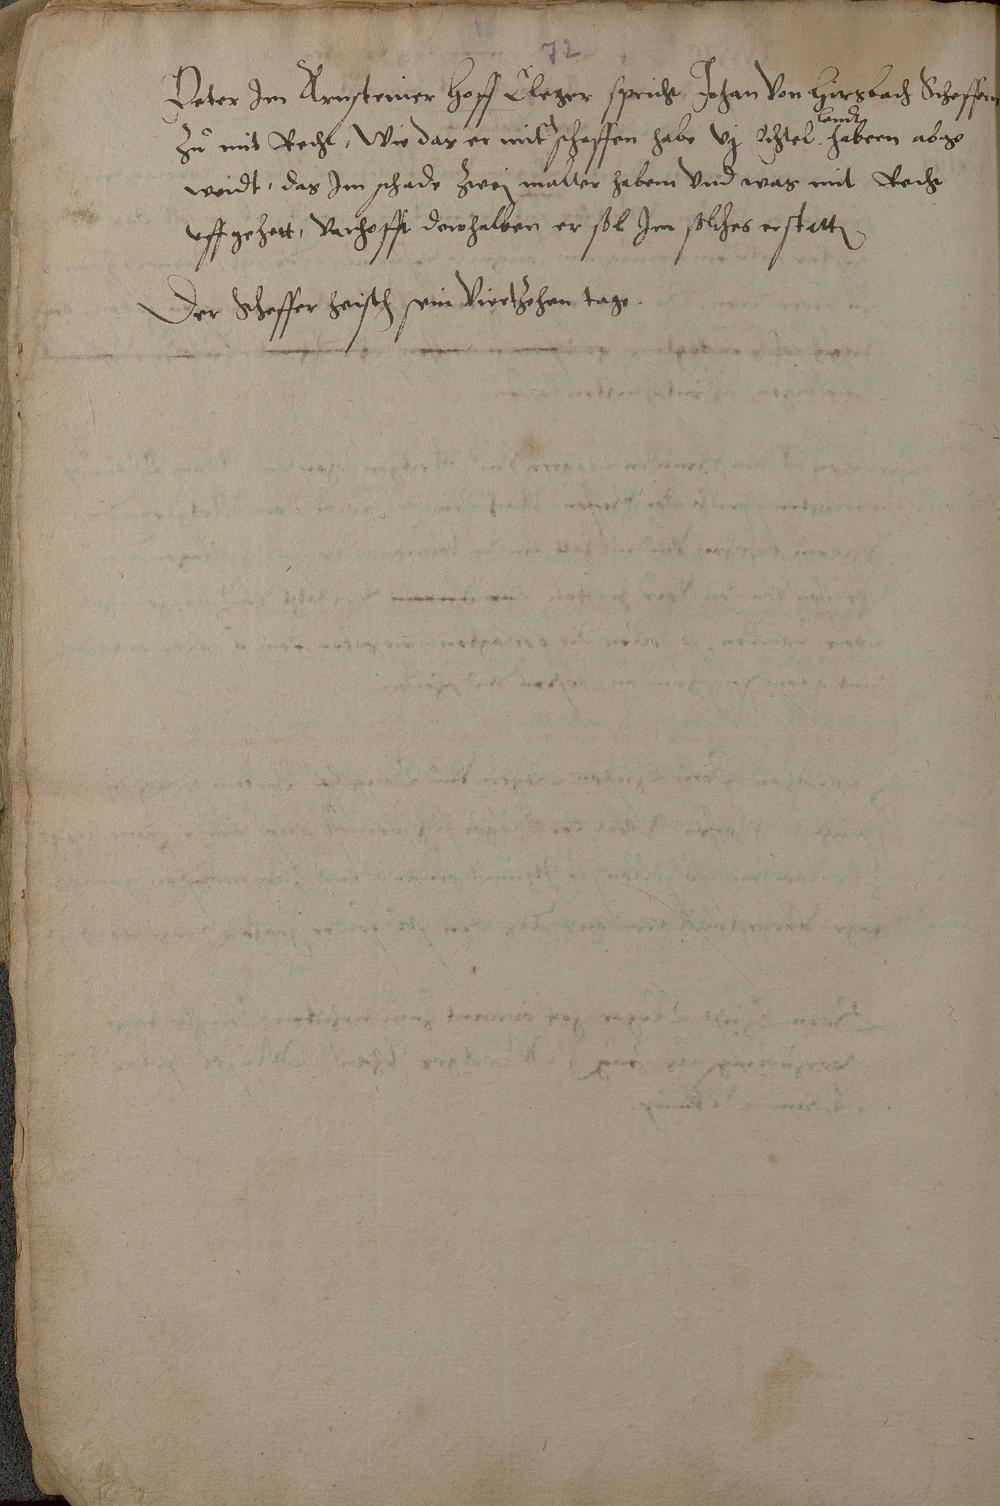 72
Peter Im Arnsteiner Hoff Cleger spricht Johan von Hirsbach Scheffern
Zu mit Recht, Wie das er mit schaffen habe vj achtel landt habern abge
weidt, das Im schade Zwej malter habern vnd was mit Recht
vffgehett, Verhofft derohalben er sol Im solches erstatten
Der Scheffer heischt sein Viertzehen tage.